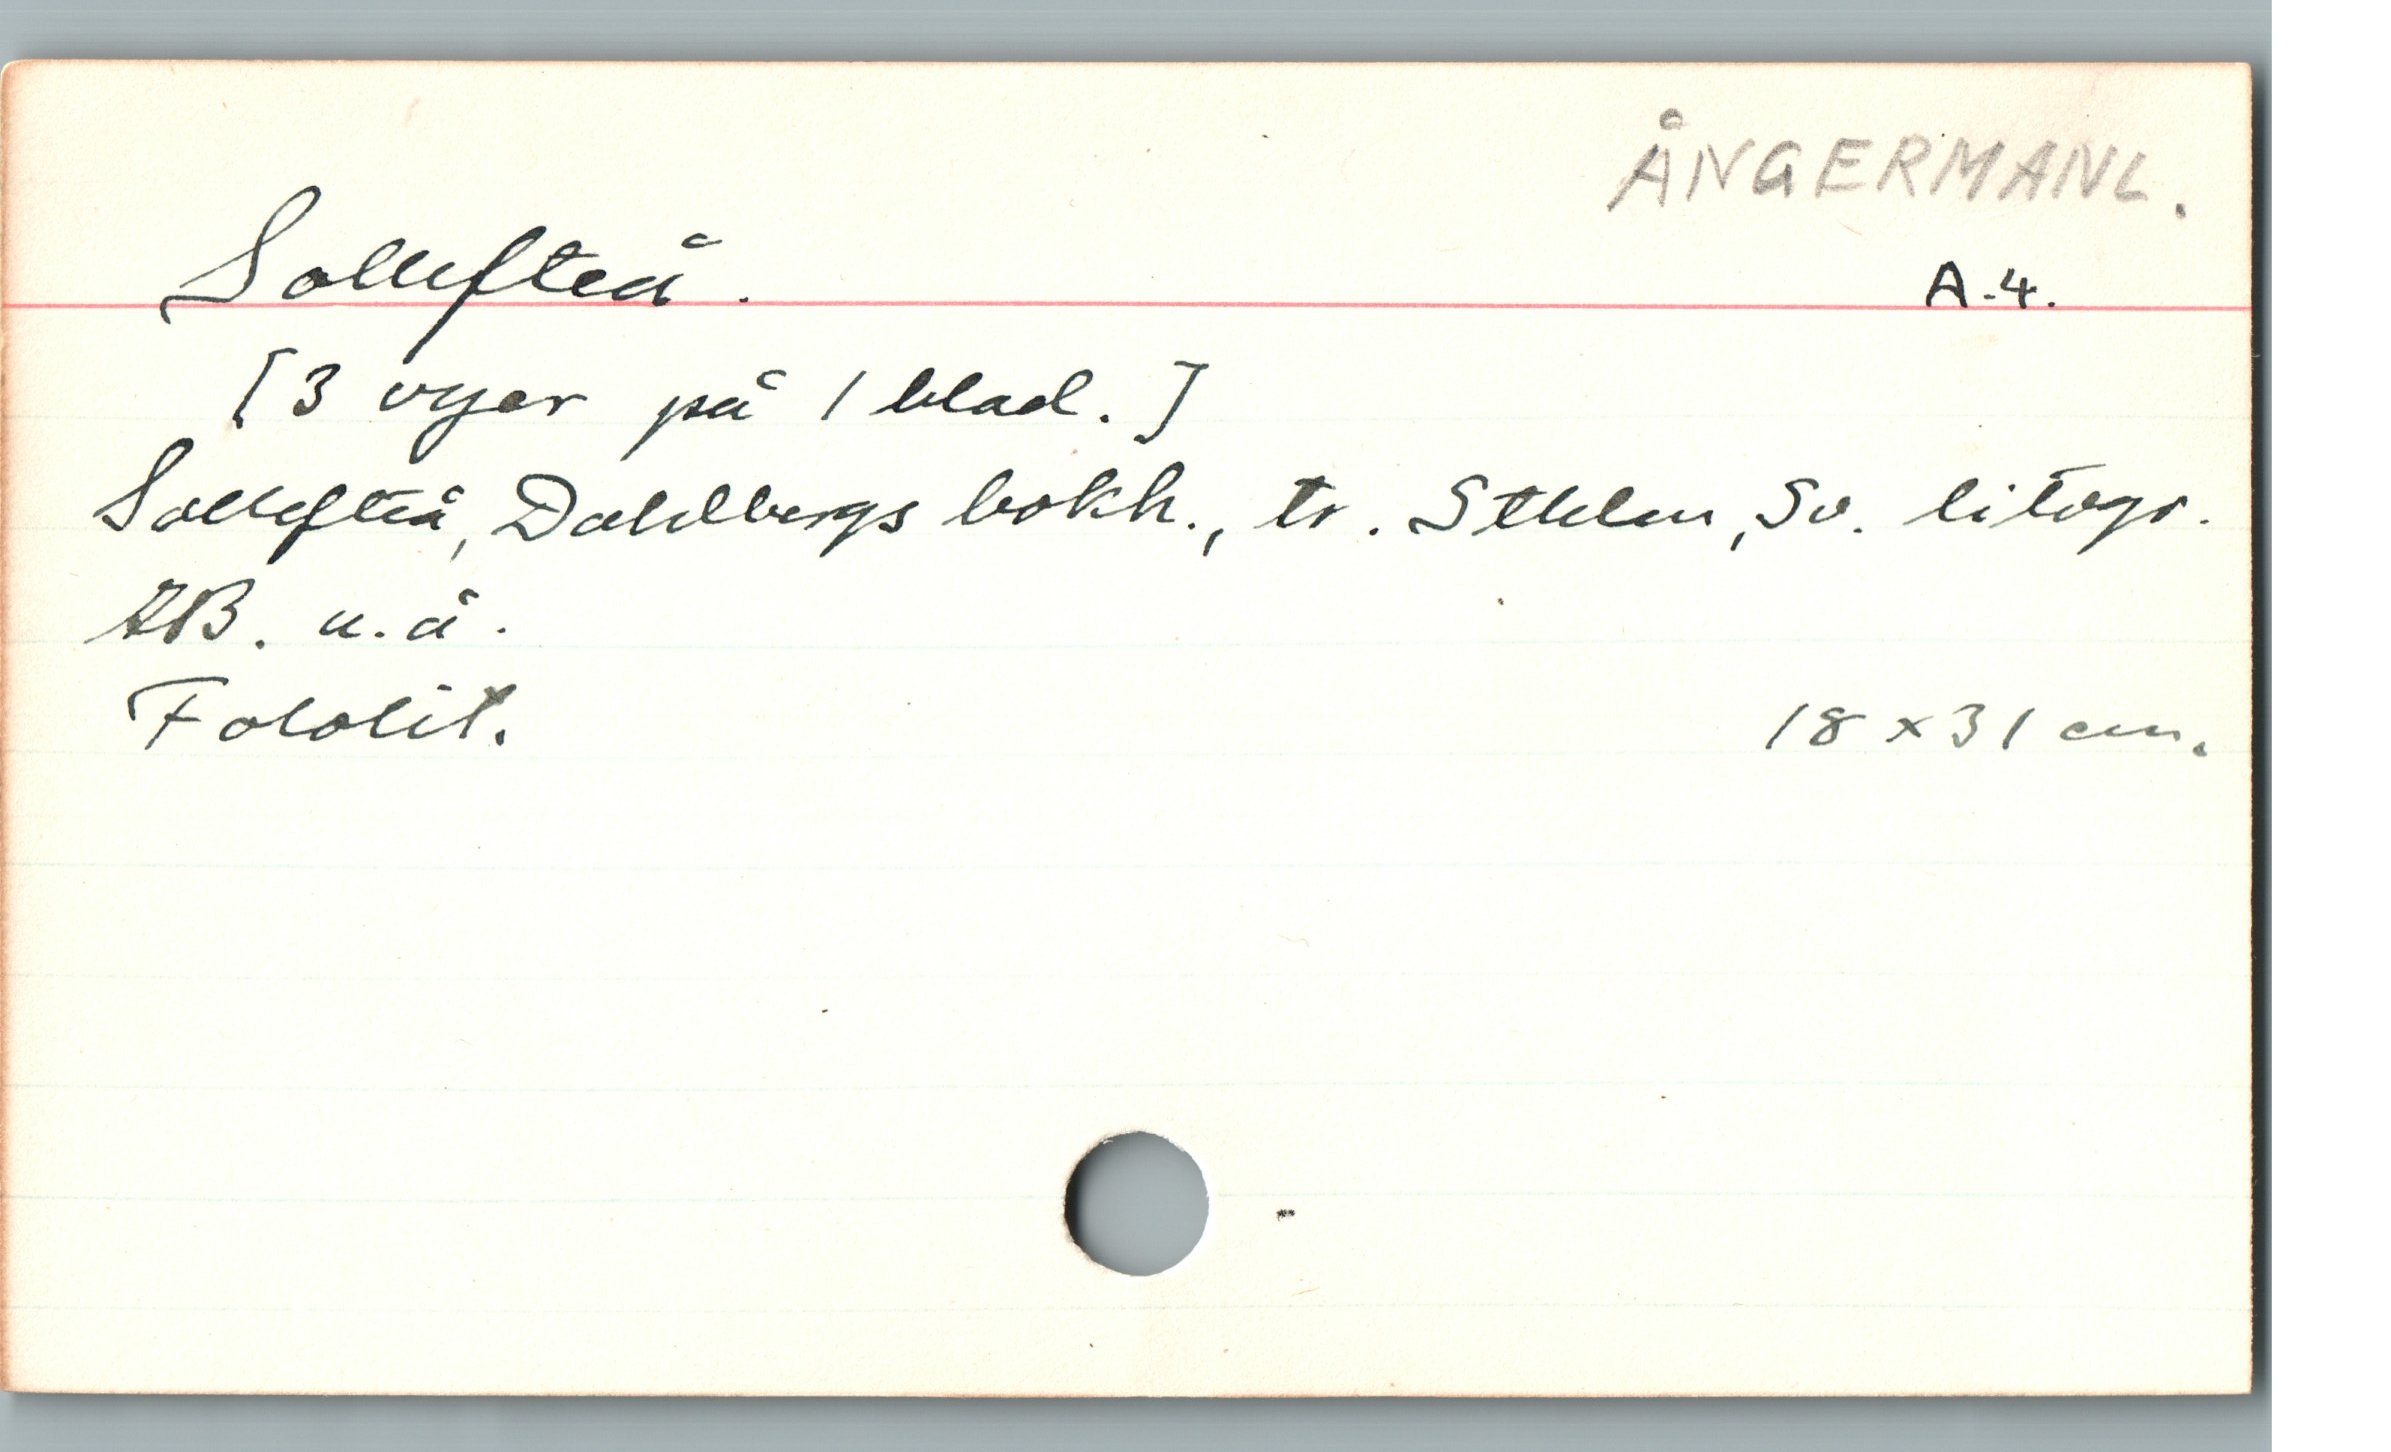 ÅNGERMANL.
Sollefteå.
A.4.
[3 vyer på 1 blad.]
Sollefteå, Dahlbergs bokh., tr. Sthlm, Sv. litogr.
AB. u.å.
Fotolit.
18 x 31 cm.